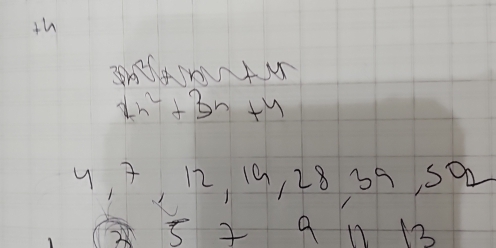 +4
n² + 3n + 4
4, 7, 12, 19, 28, 39, 52
3 5 7 9 11 13